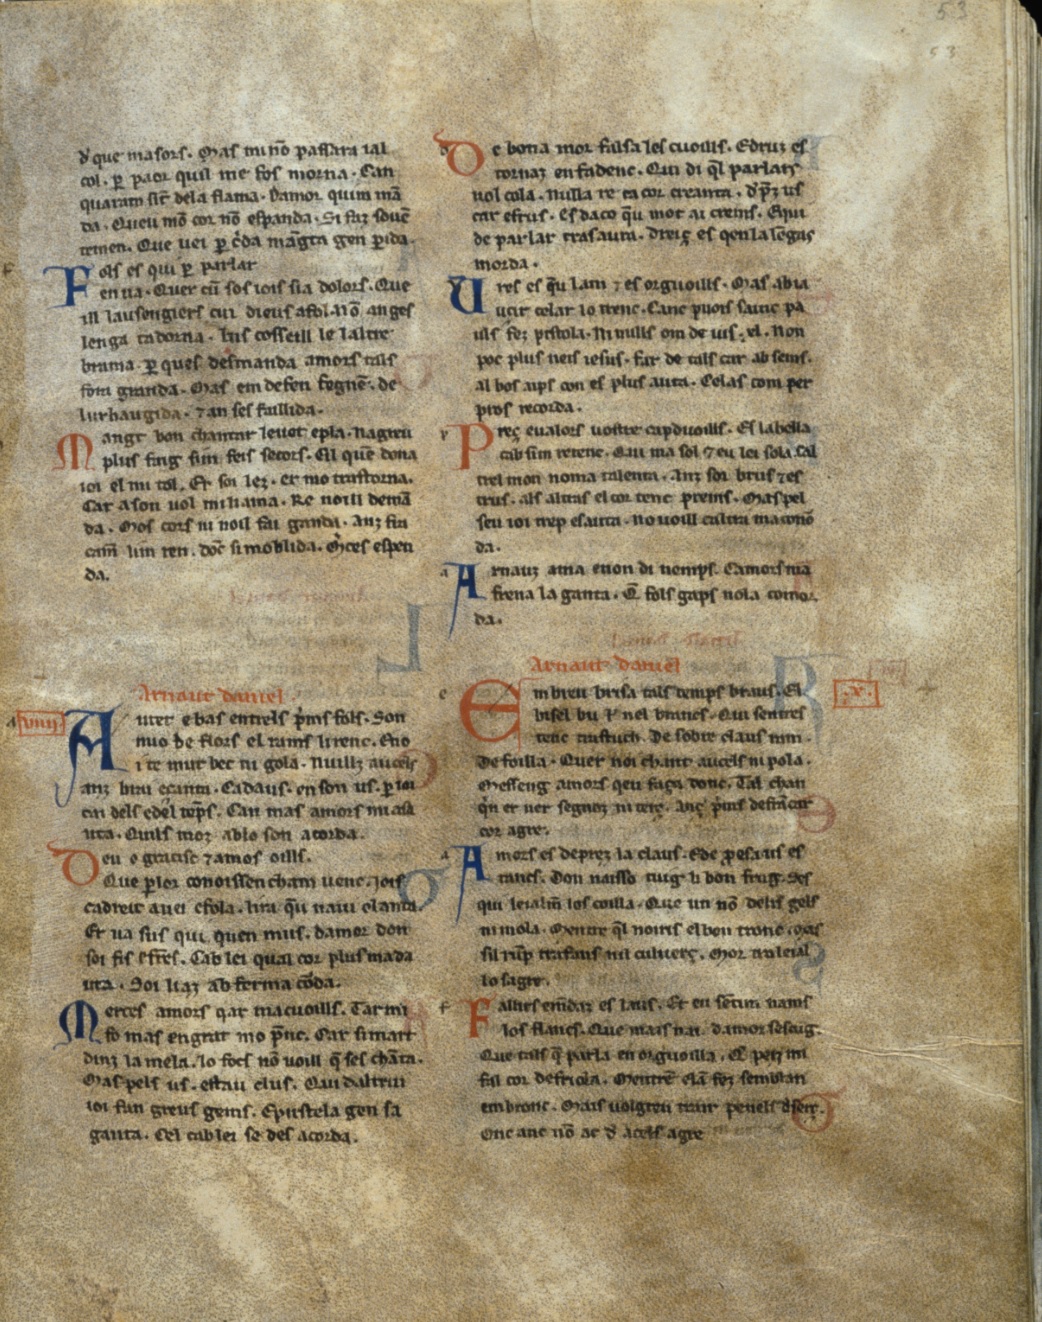 53
53
d que masors. Mas mi nō passara ial
col. ꝑ paor quil me fos morna. Can
dela flama. Damor quim mā
da. Queu mō cor nō espanda. Si faz
temen. Que uei ꝑ gen ꝑida.
Fols es qui ꝑ parlar
en ua. Quer cū sos iois sia dolors. Que
ill lausengiers cui dieus afol. Nō an ges
lenga tadorna. Lus cosseill le laltre
brama. ꝑ ques desmanda amors tals
fora granda. Mas em defen de
lur baugida. ⁊ an ses faillida.
Mangr bon chantar leuot epla. Nagreu
plus sim feis secors. Cil que dona
ioi el mi tol. Er soi lez. er mo trastorna.
Car a son uol mi liama. Re noill demā
da. Mos cors ni noil fai ganda. Anz fra
lim ren. doc̄ si moblida. Mces es peri
da.
Arnaut daniel
viiij
Auter e bas entrels pͥms fols. Son
nuo de flors el rams li renc. Eno
i te mut bec ni gola. Nuillz aucels
anz brai e canta. Cadaus. en son us. ꝑ ioi
cai dels edel tēps. Can mas amors mi asa
uta. Quils moz ab lo son acorda.
Deu o gracisc ⁊ amos oills.
Que ꝑ lor conoissenchām uenc. Iois
cadreit auci e fola. lira qū naui el anta.
Er ua sus qui quen mus. damor don
soi fis Cab lei qual cor plus mada
uta. Soi liaz ab ferma cōda.
Merces amors qar macuoills. Tarmi
fo mas en grat mo pͣnc. Car si mart
dinz la mela. lo focs nō uoill q̄ ses
Mas pels us. estau clus. Qui daltrui
ioi fan greus gems. E pustela gen sa
ganta. Cel cab lei se des acorda.
De bona mor falsa les cuoills. E druz es
tornaz en fadenc. Qui di q̄l parlars
nol cola. Nulla re ca cor creanta. us
car es frus. Es daco qū mot ai crems. E qui
de parlar trasauta. Dreiç es qen la lēgas
morda.
Vers es qū lam ⁊ es orguoills. Mas ab ia
uzir celar lo tenc. Canc puois sainz pa
uls fez pistola. Ni nuills om de ius. el. Non
poc plus neis iesus. far de tals car ab sems.
al bos aips con es plus auta. Celas com per
pros recorda.
Preç e ualors uostre capduoills. Es la bella
cab sim retenc. Qui ma sol ⁊ eu lei sola. Cal
trel mon noma talenta. Anz soi brus ⁊ es
trus. als altras el cor tenc preins. Mas pel
seu ioi trep e sauta. no uoill caltra macomō
da.
Arnauz ama e non di nemps. Camors ma
frena la ganta. Cͥ fols gaps nola comor
da.
Arnaut daniel
x.
Em breu brisa tals temps braus. El
bisel bu r nel brancs. Qui sentres
tenc De sobre claus ram
De foilla. Quer noi chant aucels ni pola.
Messeng amors qeu faça donc. Tal chan
qͥn er uer segnoz ni terç. Anç pͥms de fran car
cor agre.
Amors es de preç la claus. E de proesa us es
tancs. Don naisso tuig li bon frug. Ses
qui leialm̄ los coilla. Que un nō delis gels
ni niola. Mentre q̄l noiris el bon tronc. Mas
sil trefans ni culuerç. Mor tro leial
lo sagre.
Falhirs emdaz es laus. Et eu sentim nams
los flancs. Que mais nai damor ses cug.
Que tals q̄ parla en orguoilla. E peiz mi
fal cor de friola. Mentre elā fez semblan
embronc. Mais uolgreu trair penels
Onc anc nō ac d acels agre